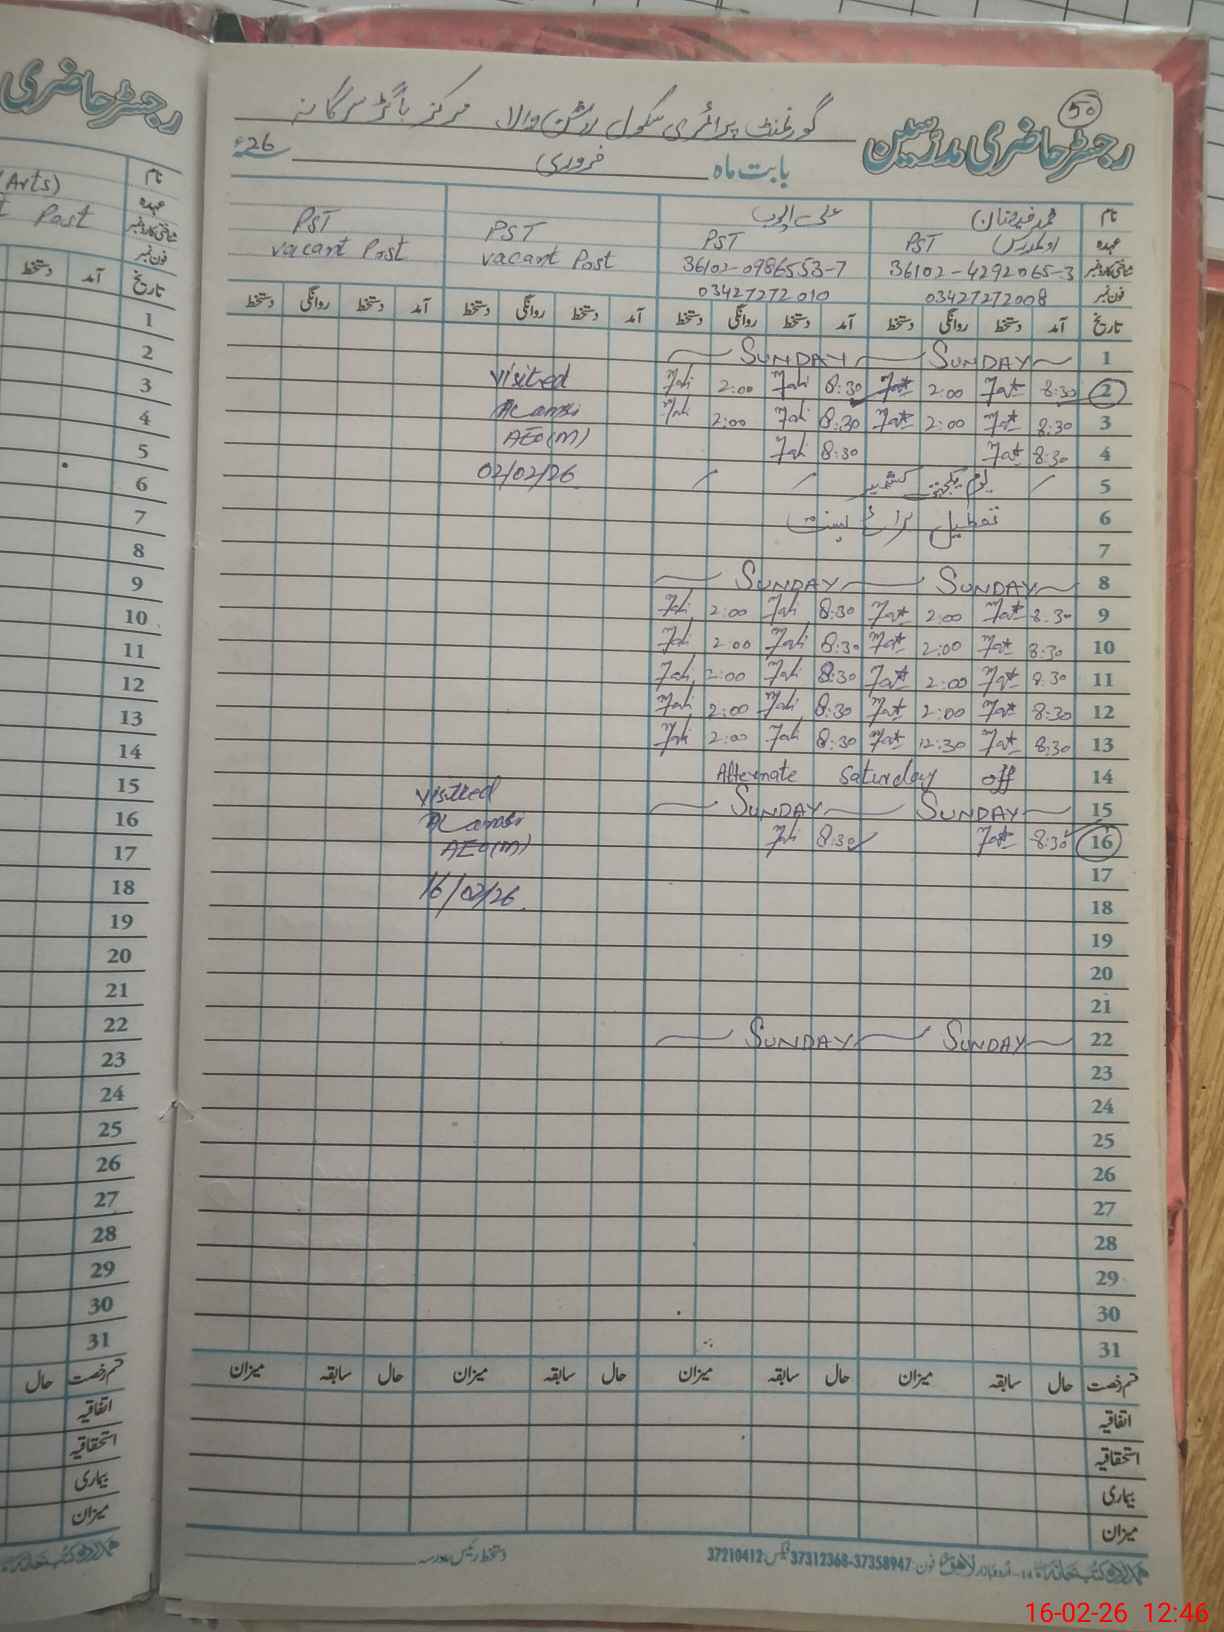 رجسٹر حاضری
نام
(Arts)
عہدہ
t Post
شناختی کارڈ نمبر
فون نمبر
تاریخ آمد دستخط
1
2
3
4
5
6
7
8
9
10
11
12
13
14
15
16
17
18
19
20
21
22
23
24
25
26
27
28
29
30
31
قسم رخصت حال
اتفاقیہ
استحقاقیہ
بیماری
میزان
50
رجسٹر حاضری مدرسین گورنمنٹ پرائمری سکول روشن والا مرکز باگڑ سرگانہ
بابت ماہ فروری 26ء
نام محمد فیضان علی ایوب PST PST
عہدہ اول مدرس PST PST vacant Post vacant Post
شناختی کارڈ نمبر 36102-4292065-3 36102-0986553-7
فون نمبر 03427272008 03427272010
تاریخ آمد دستخط روانگی دستخط آمد دستخط روانگی دستخط آمد دستخط روانگی دستخط آمد دستخط روانگی دستخط
1 SUNDAY SUNDAY
2 8:30 2:00 8:30 2:00 visited
3 8:30 2:00 8:30 2:00
4 8:30 8:30 AEO(M)
5 یوم یکجہتی کشمیر 02/02/26
6 تعطیل برائے بسنت
7
8 SUNDAY SUNDAY
9 8:30 2:00 8:30 2:00
10 8:30 2:00 8:30 2:00
11 8:30 2:00 8:30 2:00
12 8:30 2:00 8:30 2:00
13 8:30 12:30 8:30 2:00
14 Alternate Saturday off
15 SUNDAY SUNDAY visited
16 8:30 8:30 AEO(M)
17
18 16/02/26
19
20
21
22 SUNDAY SUNDAY
23
24
25
26
27
28
29
30
31
قسم رخصت حال سابقہ میزان حال سابقہ میزان حال سابقہ میزان حال سابقہ میزان
اتفاقیہ
استحقاقیہ
بیماری
میزان
ہمدرد کتب خانہ اردو بازار لاہور فون: 37312368-37358947 فیکس: 37210412 دستخط رئیس مدرسہ
16-02-26 12:46